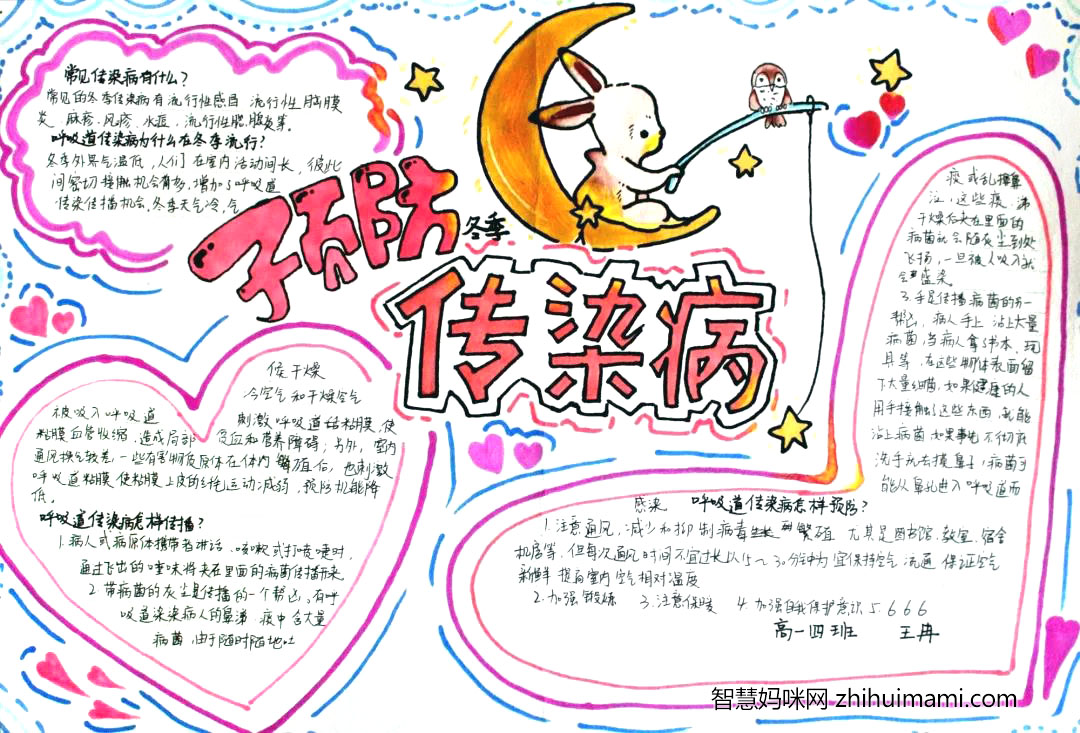 常见传染病有什么？
常见的冬季传染病有流行性感冒 流行性脑膜
炎、麻疹、风疹、水痘，流行性腮腺炎等。
呼吸道传染病为什么在冬季流行？
冬季外界气温低，人们在室内活动间长，彼此
间密切接触机会有多，增加了呼吸道
传染传播机会，冬季天气冷，气
预防
冬季
传染病
候干燥
冷空气和干燥空气
被吸入呼吸道 刺激呼吸道结粘膜，使
粘膜血管收缩，造成局部 贫血和营养障碍；另外，室内
通风换气较差，一些有害物及原体在体内繁殖后，也刺激
呼吸道粘膜 使粘膜上皮的纤毛运动减弱，预防机能降
低。
呼吸道传染病怎样传播？
1.病人或病原体携带者讲话、咳嗽或打喷嚏时，
通过飞出的唾沫将夹在里面的病菌传播开来
2.带病菌的灰尘是传播的一个帮凶，有呼
吸道染染病人的鼻涕、痰中含大量
病菌，由于随时随地吐
痰或乱擤鼻
涕，这些痰、涕
干燥后夹在里面的
病菌就会随灰尘到处
飞扬，一旦被人吸入就
会感染
3.手是传播病菌的另一
帮凶，病人手上沾上大量
病菌，当病人拿了书本、玩
具等，在这些物体表面留
下大量细菌，如果健康的人
用手接触了这些东西，就能
沾上病菌 如果事先不彻底
洗手就去摸鼻子，病菌可
能从鼻孔进入呼吸道而
感染 呼吸道传染病怎样预防？
1.注意通风，减少和抑制病毒 繁殖 尤其是图书馆、教室、宿舍
机房等，但每次通风时间不宜过长以15～30分钟为宜保持空气流通 保证空气
新鲜 提高室内空气相对湿度
2.加强锻炼 3.注意保暖 4.加强自我保护意识 5.666
高一四班 王冉
智慧妈咪网 zhihuimami.com